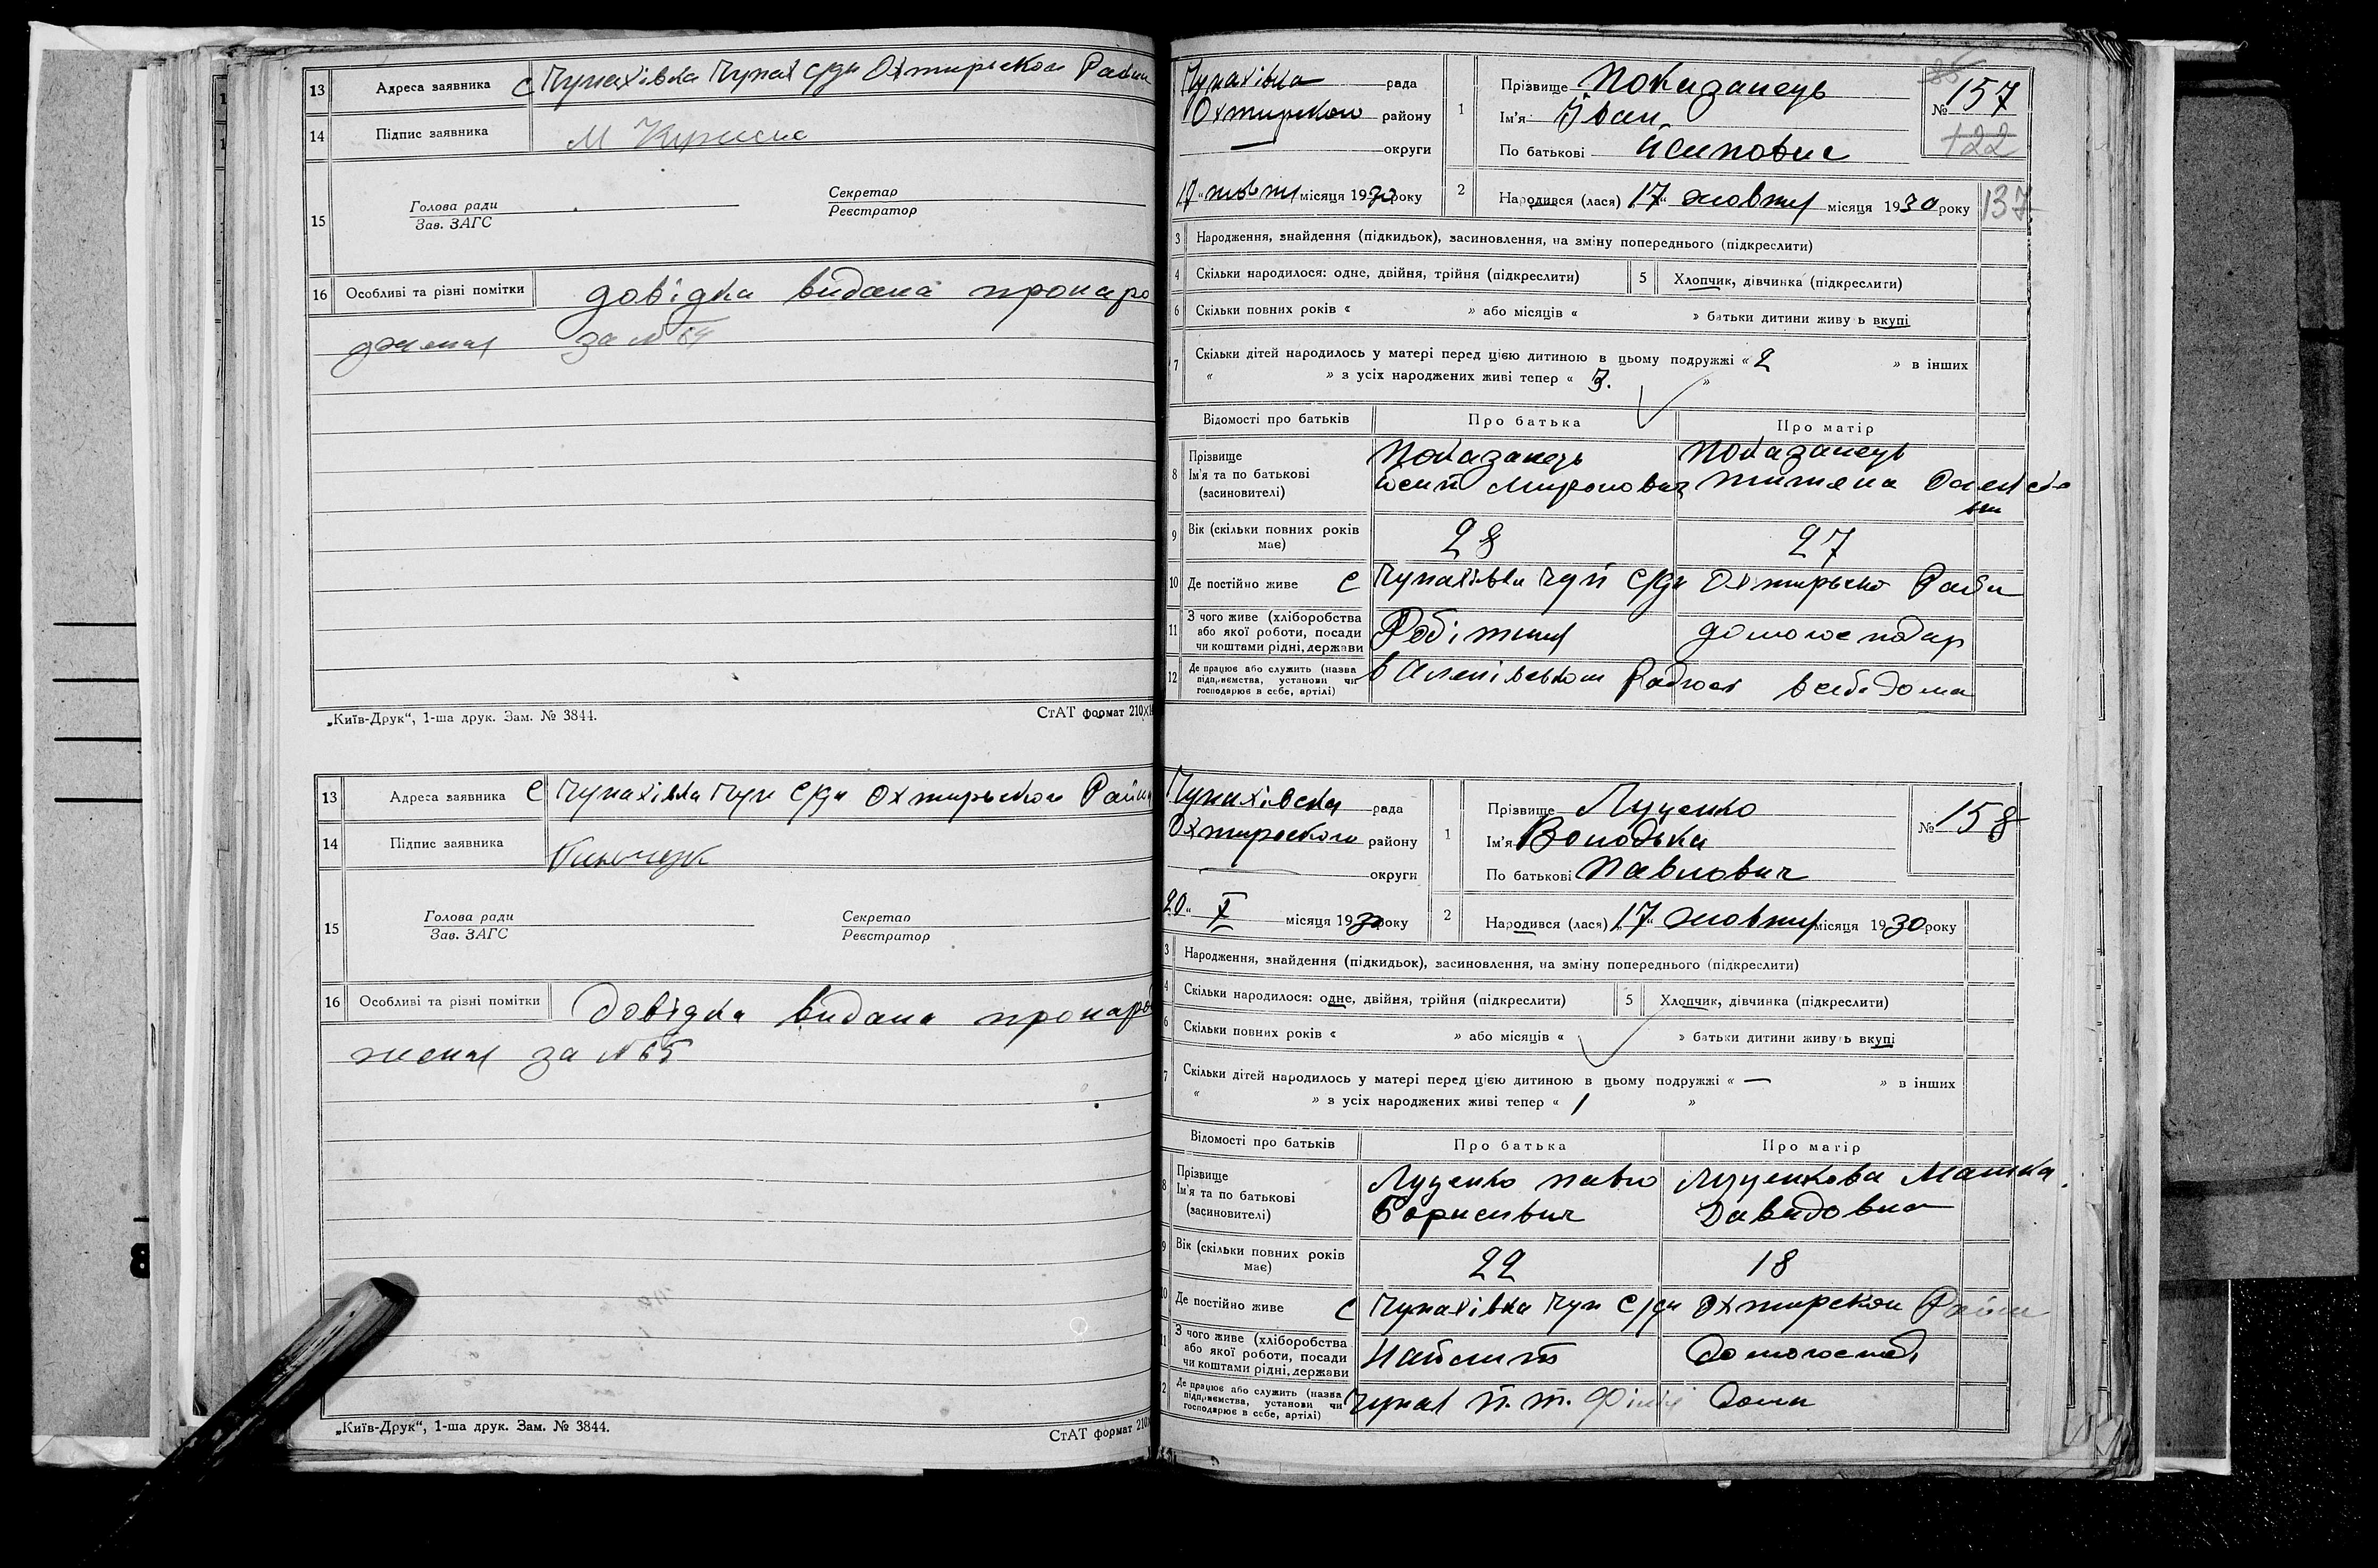 13 Адреса заявника С Чупахівка Чупах с/ди Охтирском Району
14 Підпис заявника
15 Голова ради Зав. ЗАГС Секретар Реєстратор
16 Особливі та різні помітки довідка видана про наро
дження за № 64
„Київ-Друк“, 1-ша друк. Зам. № 3844. СтАТ формат 210×
13 Адреса заявника С Чупахівка Чуп с/ди Охтирьском Району
14 Підпис заявника
15 Голова ради Зав. ЗАГС Секретар Реєстратор
16 Особливі та різні помітки довідка видана про народ
ження за № 65
„Київ-Друк“, 1-ша друк. Зам. № 3844. СтАТ формат 210
Чупахівка рада
Охтирском району
округи
17 жовтн місяця 1930 року
1 Прізвище Показанець
Ім'я Іван
По батькові Йсипович
№ 157
122
2 Народився (лася) „17“ жовтня місяця 1930 року 137
3 Народження, знайдення (підкидьок), засиновлення, на зміну попереднього (підкреслити)
4 Скільки народилося: одне, двійня, трійня (підкреслити) 5 Хлопчик, дівчинка (підкреслити)
6 Скільки повних років « » або місяців « » батьки дитини живуть вкупі
7 Скільки дітей народилось у матері перед цією дитиною в цьому подружжі «2 » в інших
« » з усіх народжених живі тепер « 3. »
Відомості про батьків Про батька Про матір
8 Прізвище Ім'я та по батькові (засиновителі) Показанець Йосип Миронович Показанець
9 Вік (скільки повних років має) 28 27
10 Де постійно живе С Чупахівки Чуп с/ди Охтирьско Району
11 З чого живе (хліборобства або якої роботи, посади чи коштами рідні, держави Робітник домогосподар
12 Де працює або служить (назва підприємства, установи чи господарює в себе, артілі) в Радгоспі в себе дома
Чупахівска рада
Охтирского району
округи
20“ X місяця 1930 року
1 Прізвище Луценко
Ім'я Володька
По батькові Павлович
№ 158
2 Народився (лася) „17“ жовтня місяця 1930 року
3 Народження, знайдення (підкидьок), засиновлення, на зміну попереднього (підкреслити)
4 Скільки народилося: одне, двійня, трійня (підкреслити) 5 Хлопчик, дівчинка (підкреслити)
6 Скільки повних років « » або місяців « » батьки дитини живуть вкупі
7 Скільки дітей народилось у матері перед цією дитиною в цьому подружжі « — » в інших
« » з усіх народжених живі тепер « 1 »
Відомості про батьків Про батька Про матір
8 Прізвище Ім'я та по батькові (засиновителі) Луценко Павло Борисович Луценкова Машка Давидовна
9 Вік (скільки повних років має) 22 18
10 Де постійно живе С Чупахівка Чуп с/ди Охтирскои Району
11 З чого живе (хліборобства або якої роботи, посади чи коштами рідні, держави домогоспод
12 Де працює або служить (назва підприємства, установи чи господарює в себе, артілі) Чупах дома